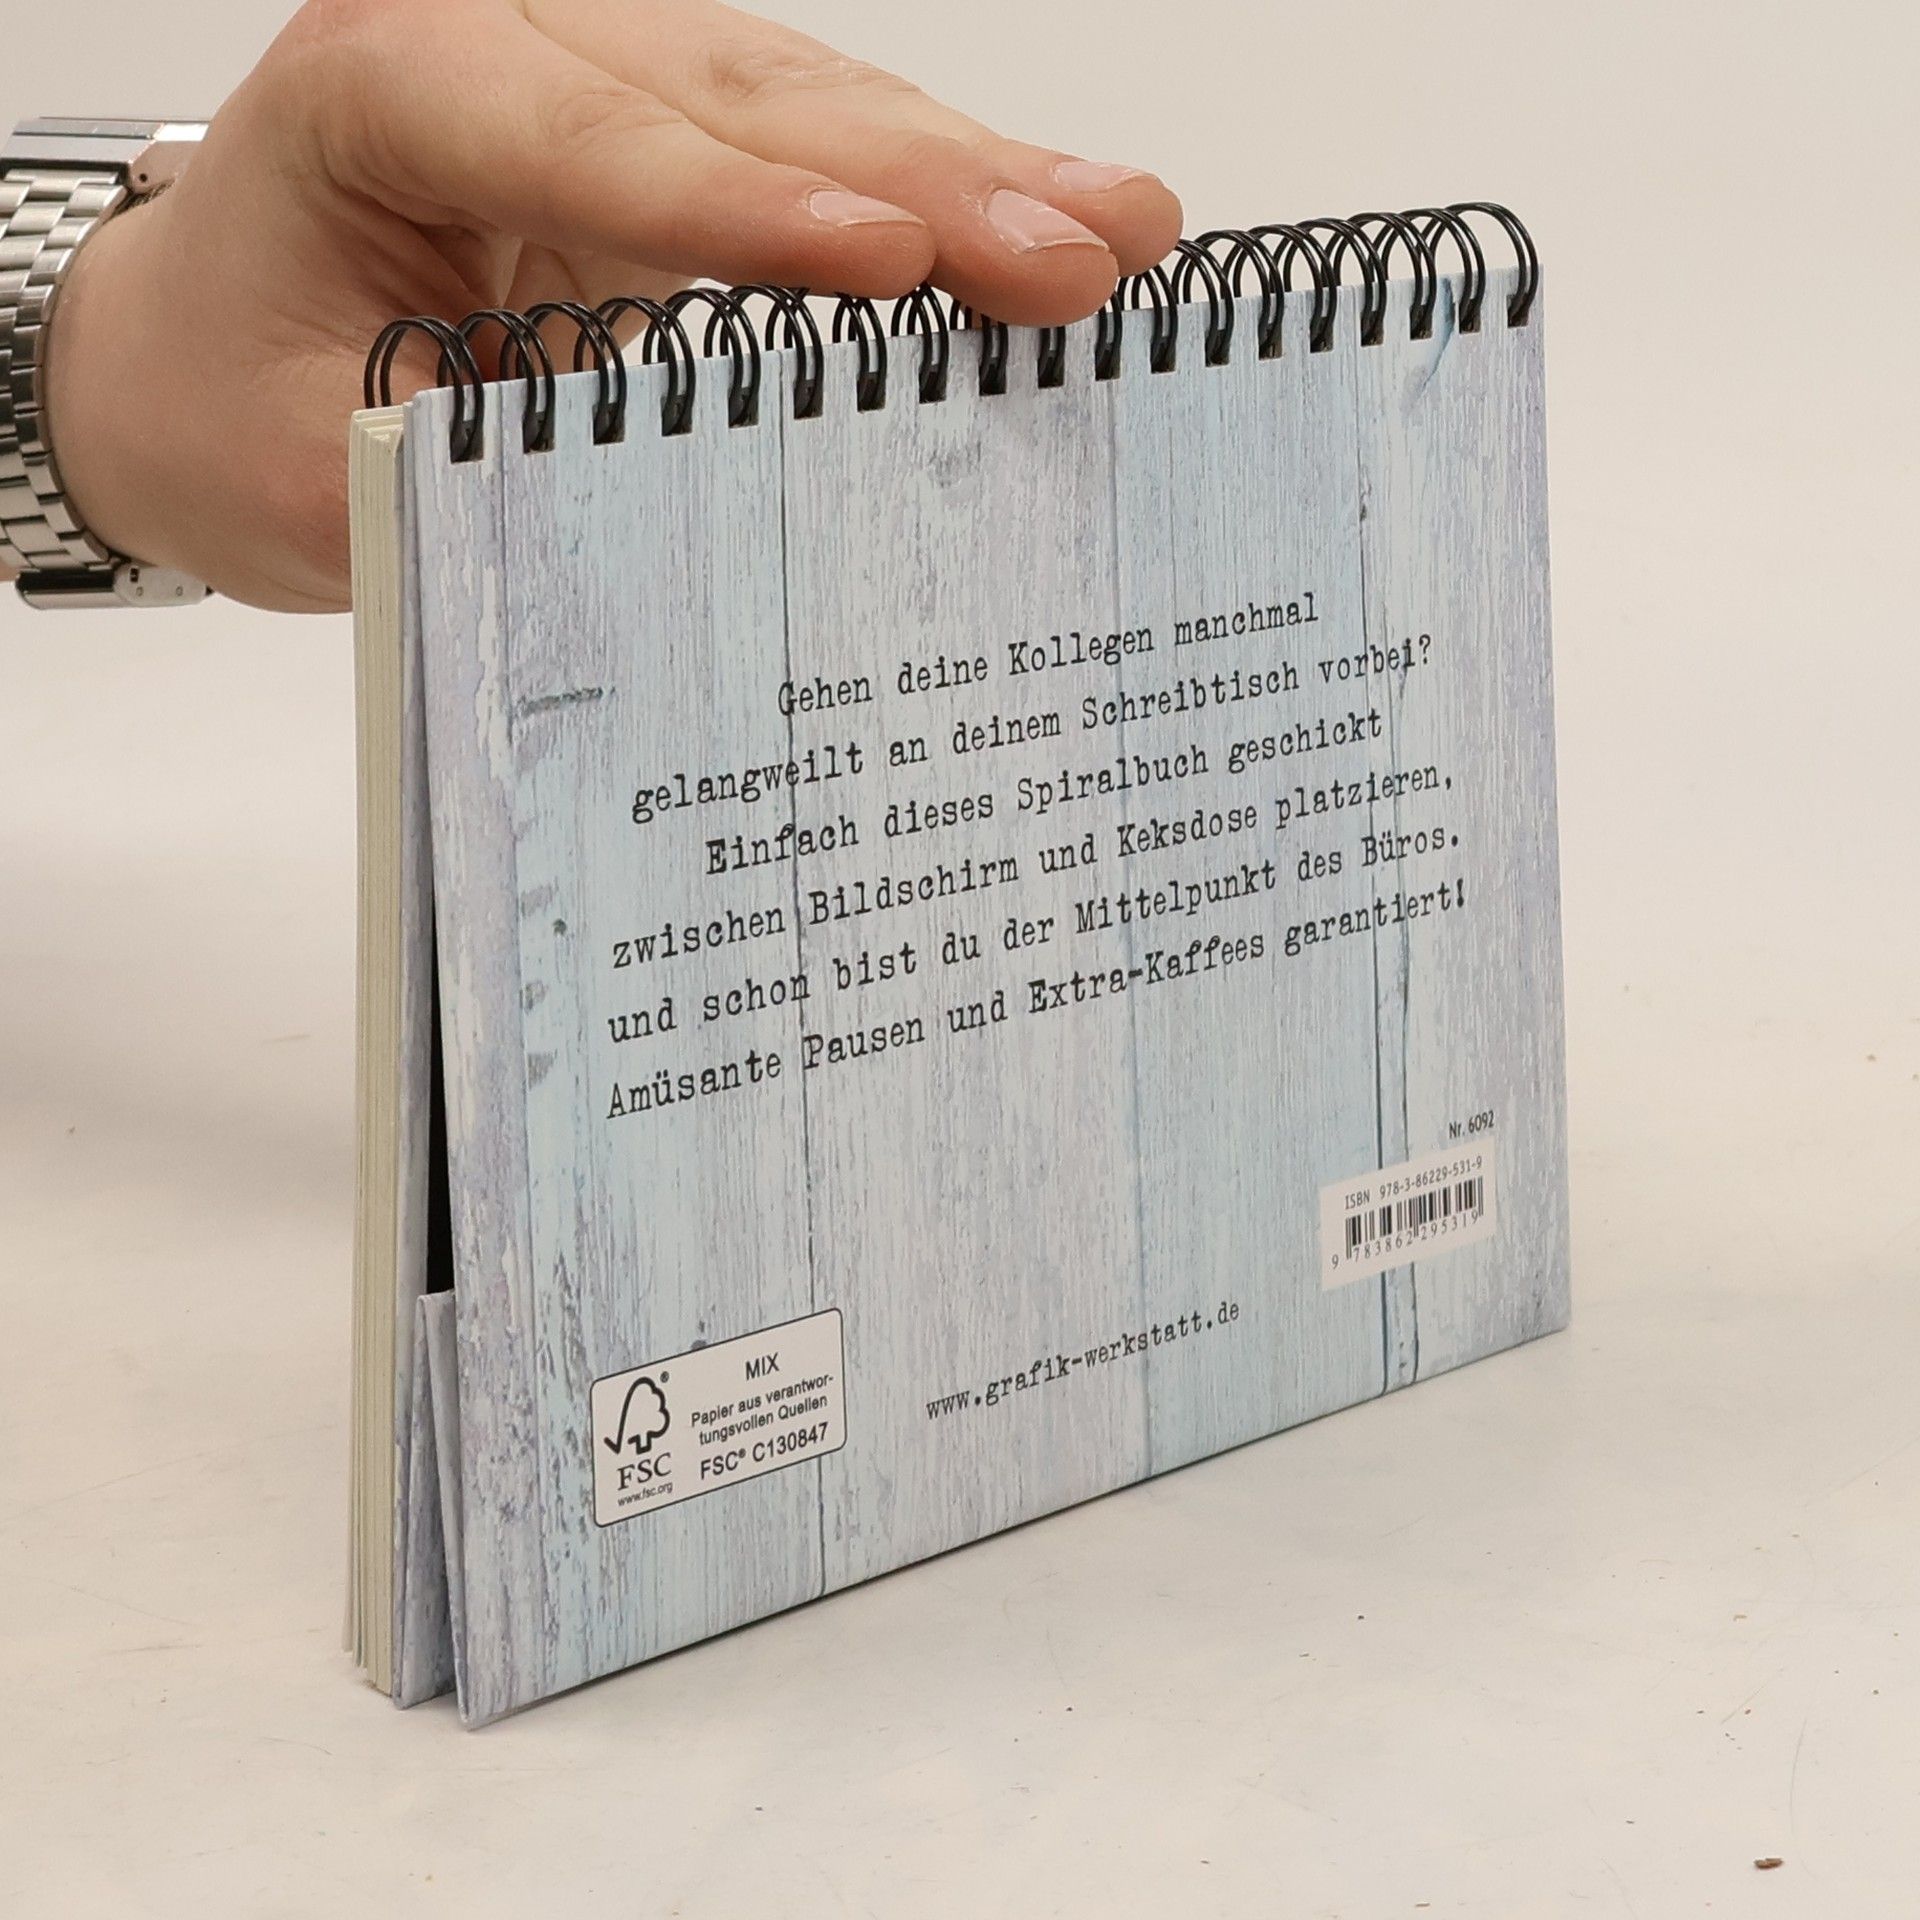 Gehen deine Kollegen manchmal
gelangweilt an deinem Schreibtisch vorbei?
Einfach dieses Spiralbuch geschickt
zwischen Bildschirm und Keksdose platzieren,
und schon bist du der Mittelpunkt des Büros.
Amüsante Pausen und Extra-Kaffees garantiert!
Nr. 6092
ISBN 978-3-86229-531-9
9 783862 295319
www.grafik-werkstatt.de
®
FSC
www.fsc.org
MIX
Papier aus verantwor-
tungsvollen Quellen
FSC® C130847